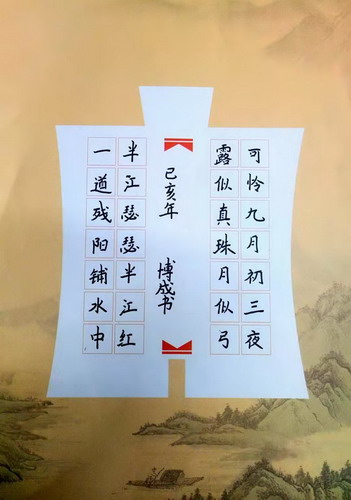 可怜九月初三夜
露似真珠月似弓
己亥年 博成书
半江瑟瑟半江红
一道残阳铺水中